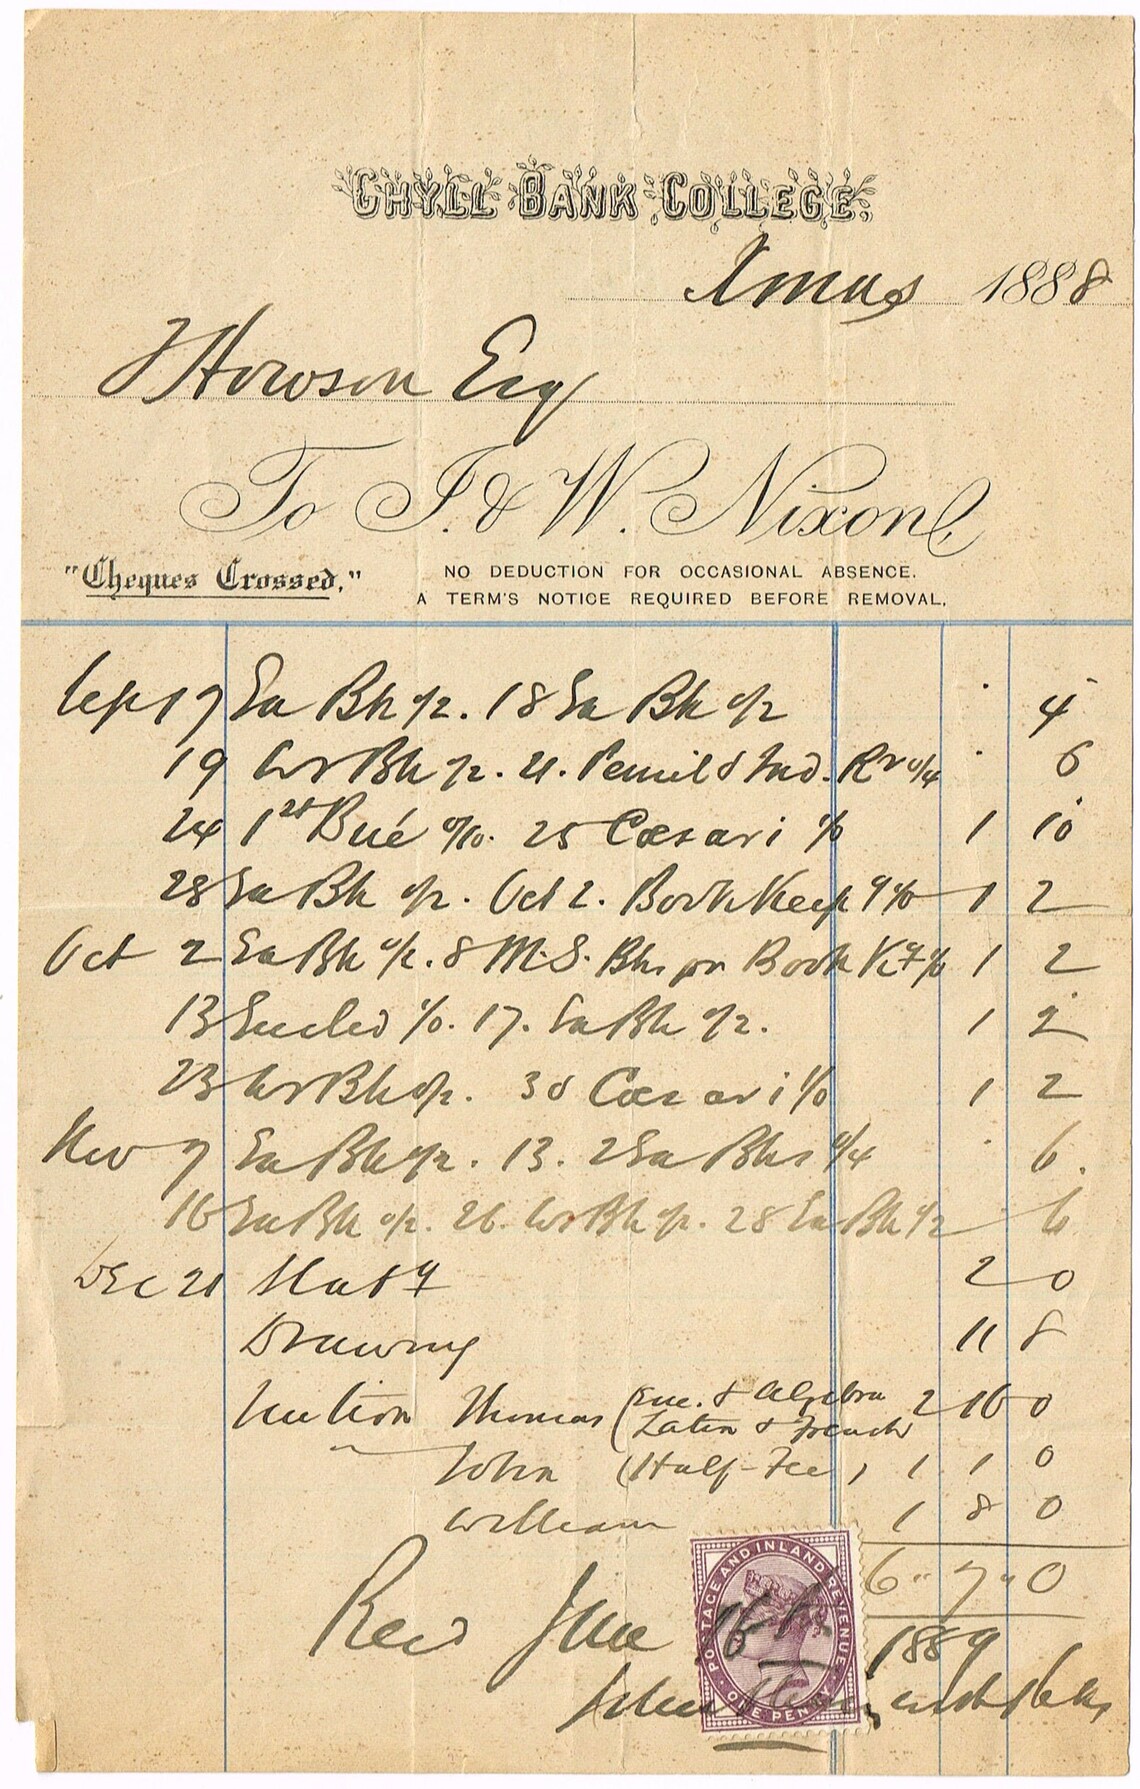 GHYLL BANK COLLEGE.
Xmas 1888
J Howson Esq
To J. & W. Nixon
"Cheques Crossed,"
NO DEDUCTION FOR OCCASIONAL ABSENCE.
A TERM'S NOTICE REQUIRED BEFORE REMOVAL.
Sept 7 Ex Bk 0/2. 18 Ex Bk 0/2 4
19 Wr Bk 0/2. 21. Pencil & Ind. Rr 0/4 6
24 1st 0/10. 25 Caesar i 1/0 1 10
28 Ex Bk 0/2. Oct 2. Book Keep 1/0 1 2
Oct 2 Ex Bk 0/2. 8 M.S. Bks for Book K 1/0 1 2
13 Euclid 1/0. 17. Ex Bk 0/2. 1 2
23 Wr Bk 0/2. 30 Caesar i 1/0 1 2
Nov 7 Ex Bk 0/2. 13. 2 Ex Bks 0/4 6.
16 Ex Bk 0/2. 26. Wr Bk 0/2. 28 Ex Bk 0/2 6
Dec 21 Staty 2 0
Drawing 11 8
Tuition Thomas (Euc. & Algebra 2 16 0
Latin & French
John (Half-Fee) 1 1 0
William 1 8 0
6 " 7 " 0
Recd June 16th 1889
John
POSTAGE AND INLAND REVENUE
ONE PENNY